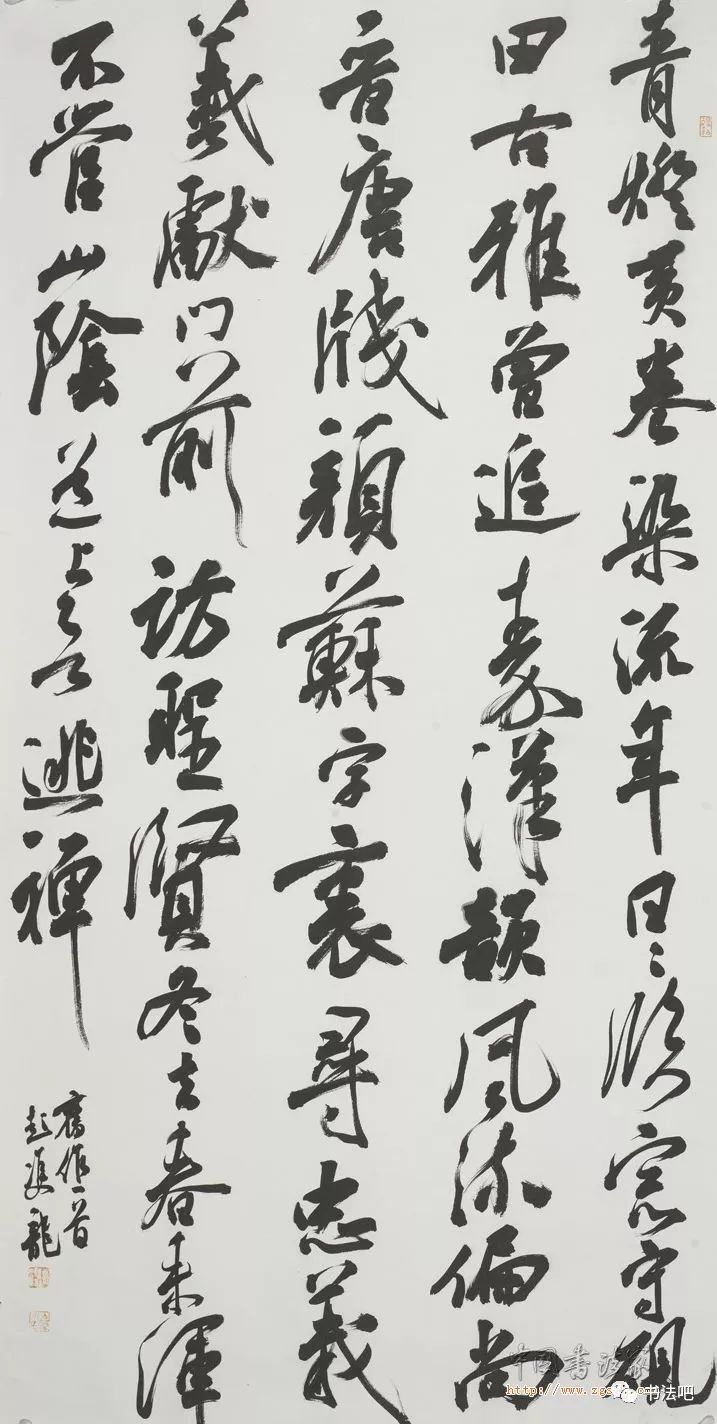 青燈黃卷染流年日〻臨窗守硯
田古雅曾追秦漢韻風流偏尚
晉唐牋顏蘇字裏尋忠義
羲獻門前訪聖賢冬去春來渾
不管山陰道上逃禪
舊作一首
彭雙龍
中国書法家
http://www.zgs
书法吧